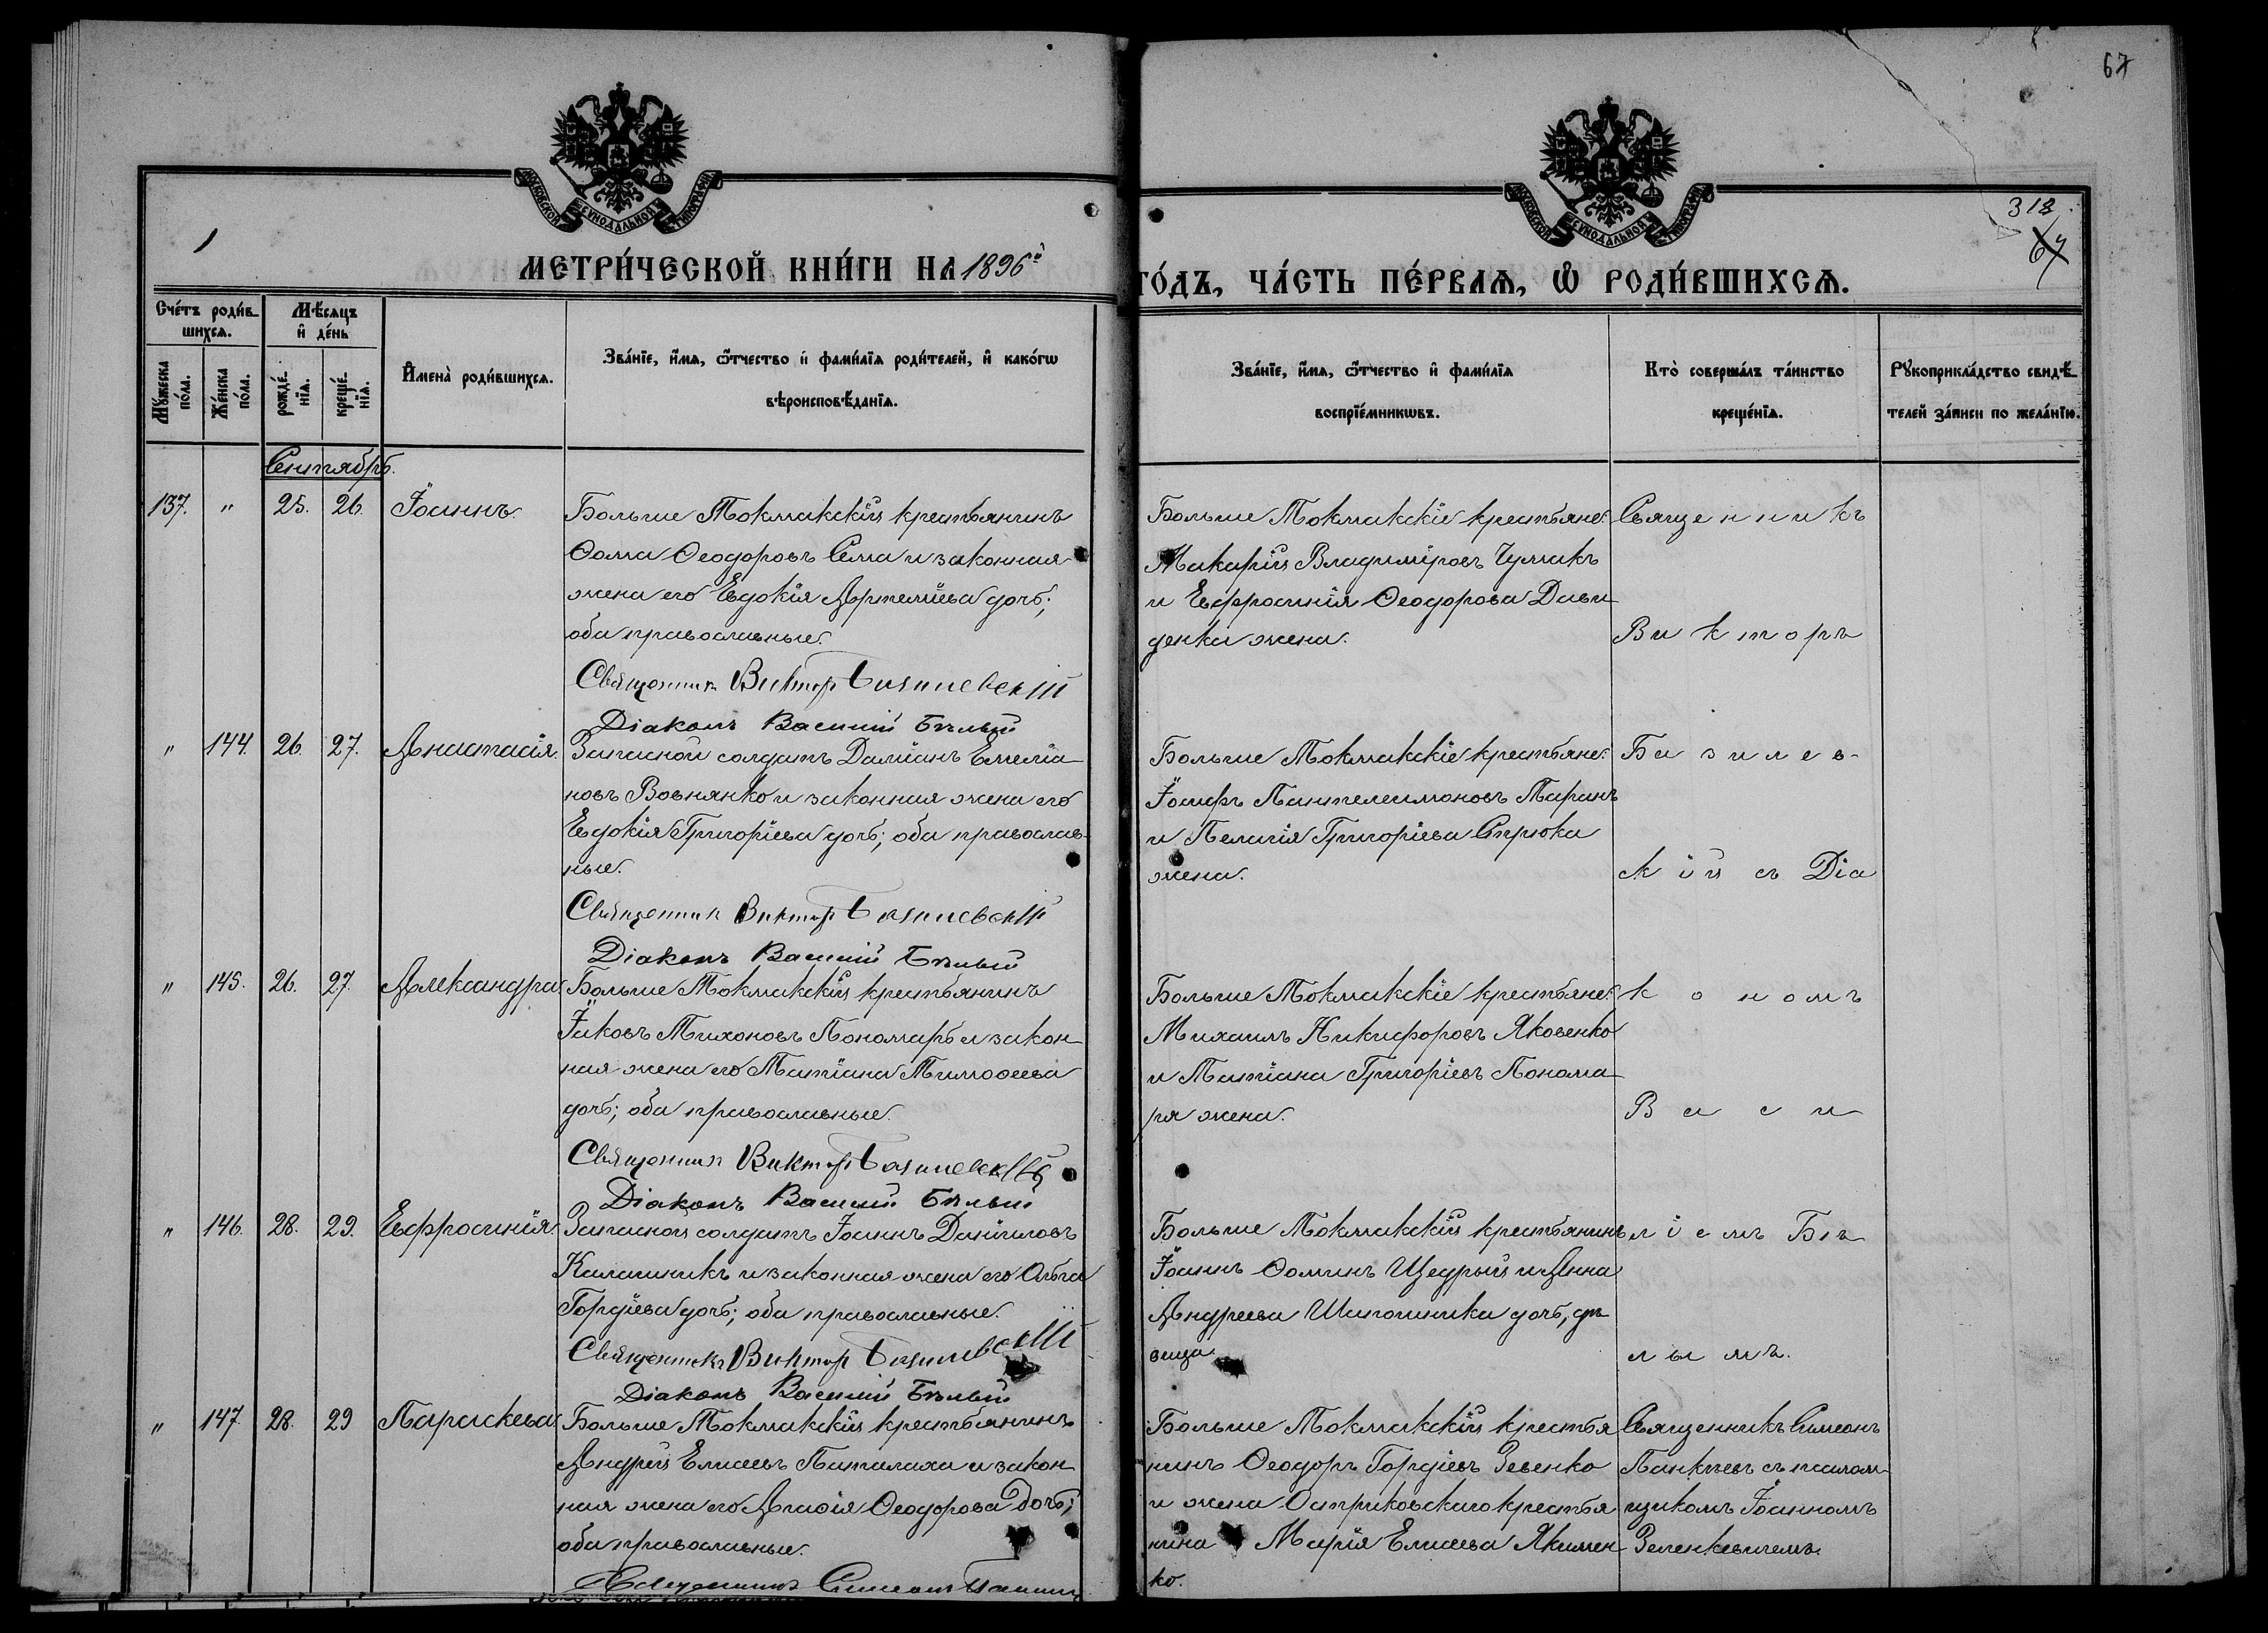 67
МОСКОВСКОЙ СѴНОДАЛЬНОЙ ТИПОГРАФІИ
МОСКОВСКОЙ СѴНОДАЛЬНОЙ ТИПОГРАФІИ
1
318
67
МЕТРИ́ЧЕСКОЙ КНИ́ГИ НА 1896й
ГО́ДЪ, ЧА́СТЬ ПЕ́РВАѦ, Ѡ҆ РОДИ́ВШИХСѦ.
Сче́тъ роди́в-
шихсѧ.
Мꙋ́жеска по́ла.
Же́нска по́ла.
Мѣ́сяцъ и҆ де́нь
рожде́-нїѧ.
креще́-нїѧ.
И҆мена̀ роди́вшихсѧ.
Зва́нїе, и҆́мѧ, ѻ҆́тчество и҆ фами́лїѧ роди́телей, и҆ како́гѡ
вѣроисповѣ́данїѧ.
Зва́нїе, и҆́мѧ, ѻ҆́тчество и҆ фами́лїѧ
воспрїе́мникѡвъ.
Кто̀ соверша́лъ та́инство
креще́нїѧ.
Рꙋкоприкла́дство свидѣ́-
телей за́писи по жела́нїю.
Сентябрь.
137. " 25. 26. Іоаннъ.
Больше Токмакскій крестьянинъ
Ѳома Ѳеодоровъ Сема и законная
жена его Евдокія Артеміева дочь;
оба православные.
Священникъ Викторъ Базилевскій
Діаконъ Василій Бѣлый
Больше Токмакскіе крестьяне:
Макарій Владиміровъ Чумакъ
и Евфросинія Ѳеодорова Дави-
денка жена.
Священникъ
Викторъ
" 144. 26. 27. Анастасія.
Запасной солдатъ Даміанъ Емеліа-
новъ Вовнянко и законная жена его
Евдокія Григоріева дочь; оба православ-
ные.
Священникъ Викторъ Базилевскій
Діаконъ Василій Бѣлый
Больше Токмакскіе крестьяне:
Іосифъ Пантелеимоновъ Таранъ
и Пелагія Григоріева Спрюка
жена.
Базилев-
кій съ Діа
" 145. 26. 27. Александра.
Больше Токмакскій крестьянинъ
Іаковъ Тихоновъ Пономарь и закон-
ная жена его Татіана Тимоѳеева
дочь; оба православные.
Священникъ Викторъ Базилевскій
Діаконъ Василій Бѣлый
Больше Токмакскіе крестьяне:
Михаилъ Никифоровъ Яковенко
и Татіана Григоріевъ Понома-
ря жена.
кономъ
Васи
" 146. 28. 29. Евфросинія.
Запасной солдатъ Іоаннъ Даніиловъ
Калашникъ и законная жена его Ольга
Гордіева дочь; оба православные.
Священникъ Викторъ Базилевскій
Діаконъ Василій Бѣлый
Больше Токмакскій крестьянинъ
Іоаннъ Ѳоминъ Щедрый и Анна
Андреева Шапошника дочь, дѣ-
вица.
ліемъ Бѣ
лымъ.
" 147. 28. 29 Параскева.
Больше Токмакскій крестьянинъ
Андрей Елисеевъ Паталаха и закон-
ная жена его Агаѳія Ѳеодорова дочь;
оба православные.
Священникъ Симеонъ
Больше Токмакскій крестья
нинъ Ѳеодоръ Гордіевъ Зевенко
и жена Остриковскаго крестья
нина Марія Елисеева Якимен-
ко.
Священникъ Симеонъ
Панкѣевъ съ псалом-
щикомъ Іоанномъ
Зеленкевичемъ.